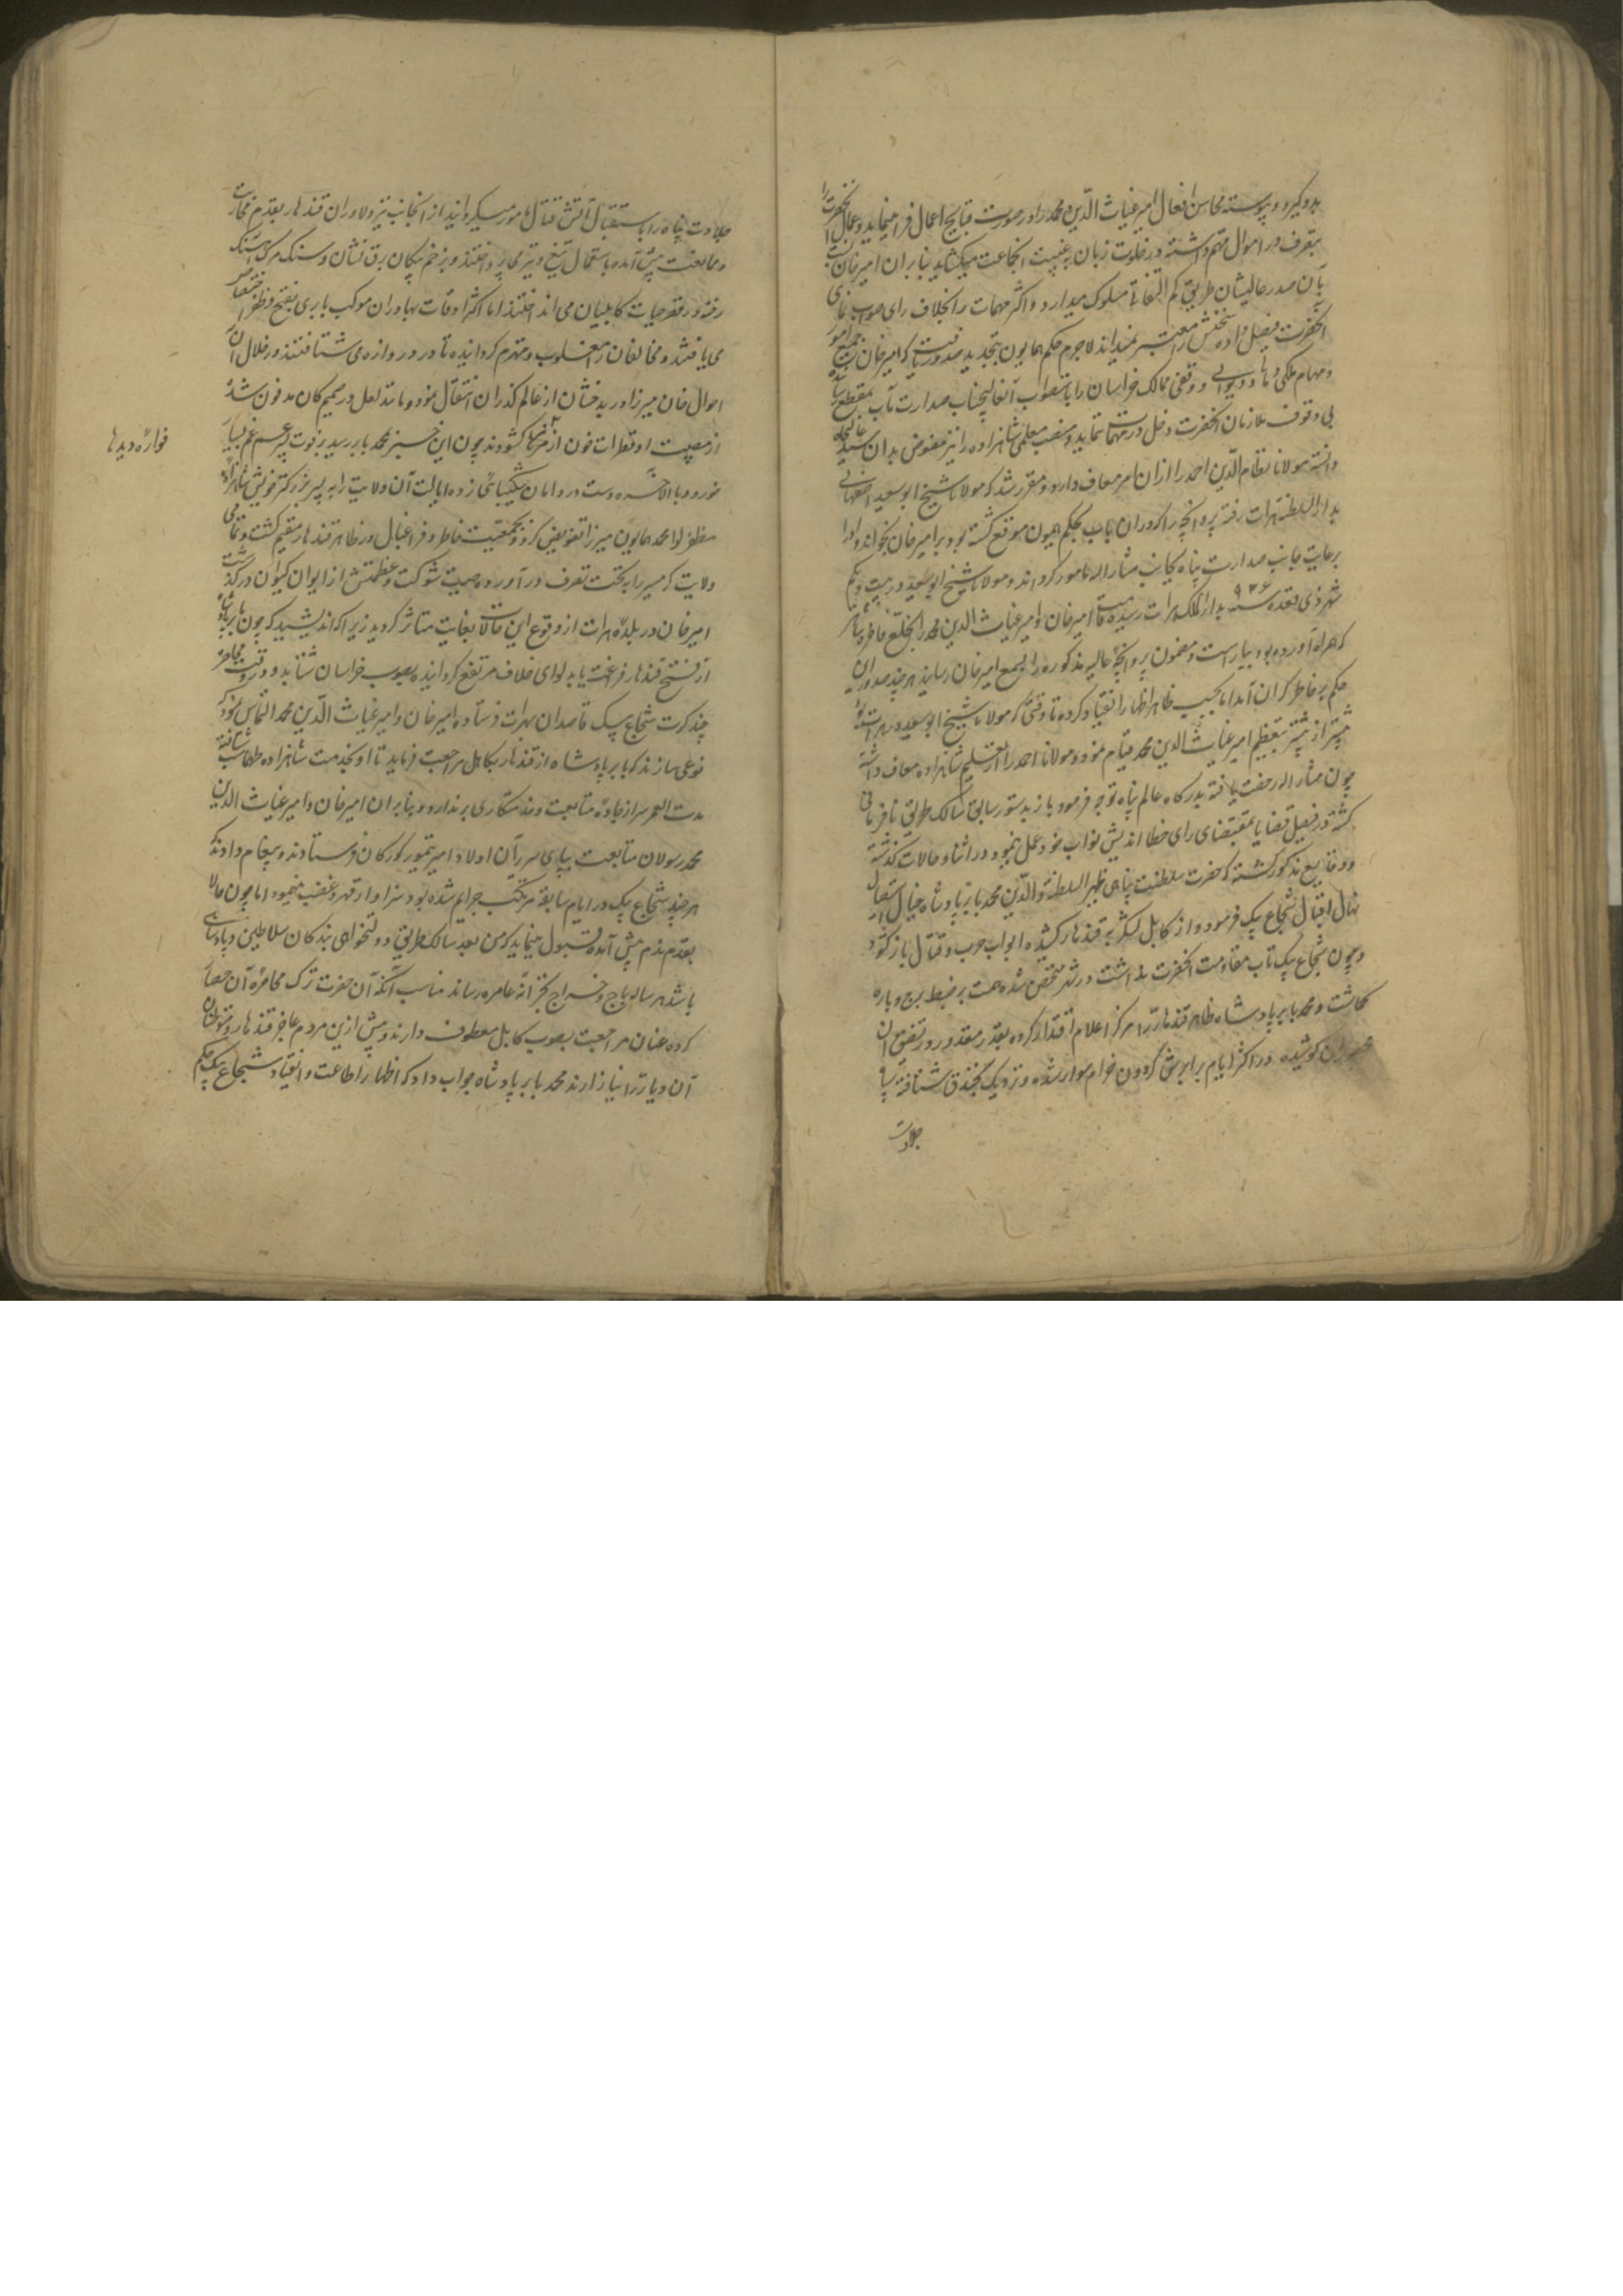 بد و گیرد و پیوسته محاسن افعال امیر غیاث الدین محمد را در صورت قبایح اعمال فرا مینماید و عمال آنحضرت را
بتصرف در اموال متهم داشته در خلوت زبان بغیبت انجماعت میکشاید بنابران امیرخان
بآن صدر عالیشان طریق کم التفاتی مسلوک میدارد و اکثر مهمات را بخلاف رای صواب نمای
آنحضرت فیصل داده سخنش را معتبر نمیداند لاجرم حکم همایون بتجدید صدور یافت که امیرخان جمیع امور
و مهام ملکی و مالی و دیوانی و وقفی ممالک خراسان را باستصواب آنعالیجناب صدارت مآب بمقطع رساند
بی وقوف ملازمان آنحضرت دخل در مهمات ننماید و منصب معلمی شاهزاده را نیز مفوض بدان سید عالیجاه
دانسته مولانا نظام الدین احمد را ازان امر معاف دارد و مقرر شد که مولانا شیخ ابو سعید اصفهانی
بدار السلطنه هرات رفته پروانچه را که دران باب بحکم همیون موقع گشته بود بر امیرخان بخواند و او را
برعایت جانب صدارت پناه بجانب مشار الیه مامور گرداند و مولانا شیخ ابو سعید در بیست و یکم
شهر ذی قعده سنه ۹۲۶ بدار الملک هرات رسیده قامت امیرخان و امیر غیاث الدین محمد را بخلع فاخره شاهی
که همراه آورده بود بیاراست و مضمون پروانچه عالیه مذکوره را بسمع امیرخان رسانید هر چند صدور این
حکم بر خاطر گران آمد اما بحسب ظاهر اظهار انقیاد کرده تا وقتی که مولانا شیخ ابو سعید در هرات بود
بیشتر از پیشتر بتعظیم امیر غیاث الدین محمد قیام نمود و مولانا احمد را از تعلیم شاهزاده معاف داشته
چون مشار الیه رخصت یافته بدرگاه عالم پناه توجه فرمود باز بدستور سابق سالک طریق نافرمانی
گشته در فیصل قضایا بمقتضای رای خطا اندیش نواب خود عمل نمود و در اثناء حالات گذشته
و وقایع مذکور گشته که حضرت سلطنت پناهی ظهیر السلطنة والدین محمد بابر پادشاه خیال استیصال
نهال اقبال شجاع بیک فرموده و از کابل لشکر به قندهار کشیده ابواب حرب و قتال باز کشود
و چون شجاع بیک تاب مقاومت آنحضرت نداشت در شهر متحصن شده همت بر ضبط برج و باره
گماشت و محمد بابر پادشاه ظاهر قندهار را مرکز اعلام اقتدار کرده بقدر مقدور در تضیق آن
محصوران کوشیده در اکثر ایام بر ابرش گردون خرام سوار شده و نزدیک بخندق شتافته سپاه
جلادت
جلادت پناه را باستقبال آتش قتال مامور میگردانید از انجانب نیز دلاوران قندهار بقدم محاربت
و ممانعت پیش آمده باستعمال تیغ و تیر می پرداختند و بزخم پیکان برق نشان و سنگ مرگ آهنگ
رخنه در قصر حیات کابلیان می انداختند اما اکثر اوقات بهادران موکب بابری بفتح و ظفر اختصاص
می یافتند و مخالفان را مغلوب و منهزم گردانیده تا در دروازه می شتافتند در خلال آن
احوال خان میرزا در بدخشان از عالم گذران انتقال نمود و مانند لعل در صمیم کان مدفون شد
از مصیبت او قطرات خون از مژها کشودند چون این خبر بمحمد بابر رسید بر فوت پسر عم غم بسیار
خورد و بالاخره دست در دامان شکیبائی زده ایالت آن ولایت را به پسر بزرگتر خویش شاهزاده
فواره دیدها
مظفر لوا محمد همایون میرزا تفویض کرد و بجمعیت خاطر و فراغبال در ظاهر قندهار مقیم گشت و تمامی
ولایت گرمسیر را بتحت تصرف در آورده صیت شوکت و عظمتش از ایوان کیوان درگذشت
امیرخان در بلده هرات از وقوع این حالات بغایت متاثر گردید زیرا که اندیشید که چون بابر پادشاه
از فتح قندهار فراغت یابد لوای خلاف مرتفع گردانیده بصوب خراسان شتابد و در وقت محاصره
چند کرت شجاع بیک قاصدان بهرات فرستاده امیرخان و امیر غیاث الدین محمد التماس نمود که
نوعی سازند که بابر پادشاه از قندهار بکابل مراجعت فرماید تا او بخدمت شاهزاده طهماسب شتافته
مدت العمر سر از جاده متابعت و خدمتکاری برندارد و بنابران امیرخان و امیر غیاث الدین
محمد رسولان متابعت بپای سریر آن اولاد امیر تیمور گورکان فرستادند و پیغام دادند که
هر چند شجاع بیک در ایام سابقه مرتکب جرایم شده بود و سزاوار قهر و غضب مینمود اما چون حالا
بقدم ندم پیش آمده قبول مینماید که من بعد سالک طریق دولتخواهی بندگان سلاطین و پادشاهی
باشد هر ساله باج و خراج بخزانه عامره رساند مناسب آنکه آن حضرت ترک محاصره آن حصار
کرده عنان مراجعت بصوب کابل معطوف دارند و پیش ازین مردم عاجز قندهار و متوطنان
آن دیار را نیازارند محمد بابر پادشاه جواب داد که اظهار اطاعت و انقیاد شجاع بیک بحکم